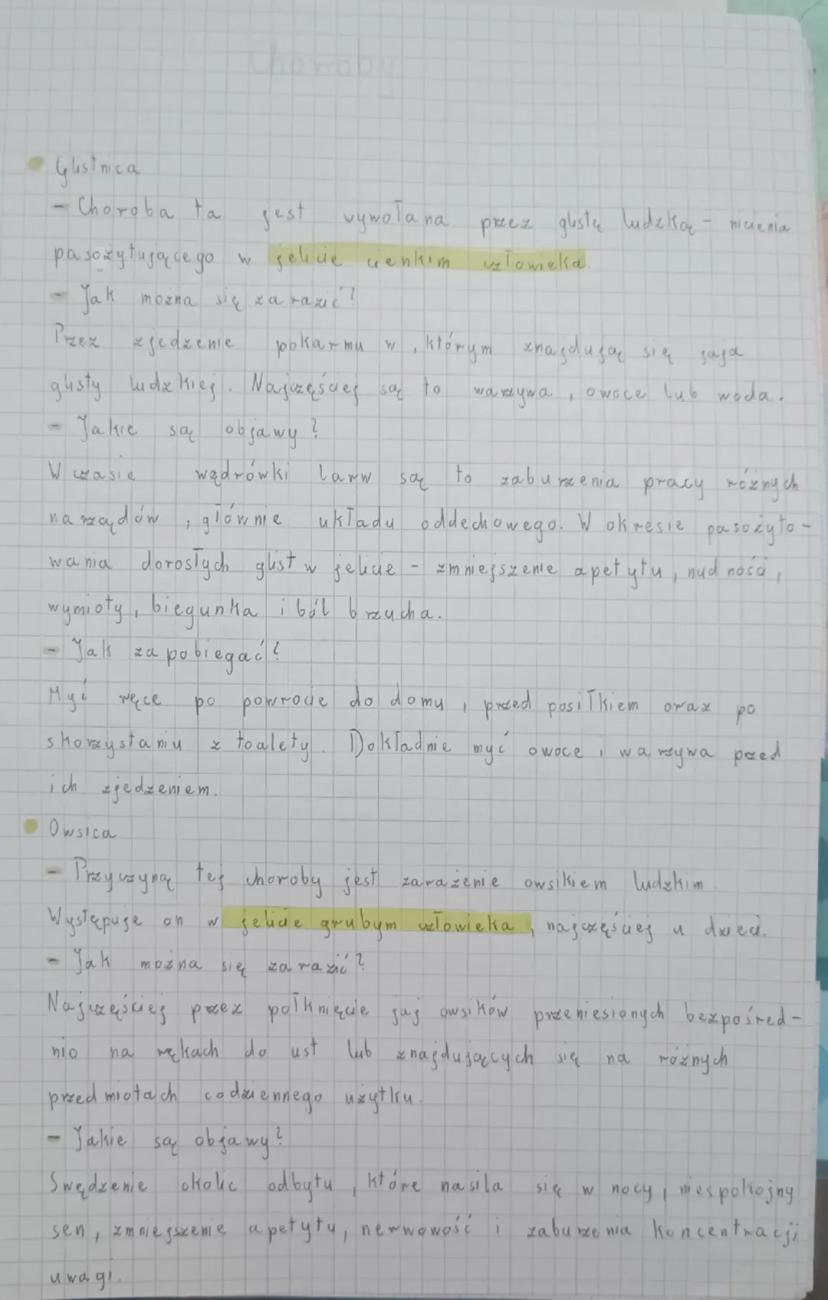 Choroby
Glistnica
- Choroba ta jest wywołana przez glistę ludzką - nicienia
pasożytującego w jelicie cienkim człowieka.
- Jak można się zarazić?
Przez zjedzenie pokarmu w, którym znajdują się jaja
glisty ludzkiej. Najczęściej są to warzywa, owoce lub woda.
- Jakie są objawy?
W czasie wądrówki larw są to zaburzenia pracy różnych
narządów, głównie układu oddechowego. W okresie pasożyto-
wania dorosłych glist w jelicie - zmniejszenie apetytu, nudności,
wymioty, biegunka i ból brzucha.
- Jak zapobiegać?
Myć ręce po powrocie do domu, przed posiłkiem oraz po
skorzystaniu z toalety. Dokładnie myć owoce i warzywa przed
ich zjedzeniem.
Owsica
- Przyczyną tej choroby jest zarażenie owsikiem ludzkim
Występuje on w jelicie grubym człowieka, najczęściej u dzieci.
- Jak można się zarazić?
Najczęściej przez połknięcie jaj owsików przeniesionych bezpośred-
nio na rękach do ust lub znajdujących się na różnych
przedmiotach codziennego użytku.
- Jakie są objawy?
Swędzenie okolic odbytu, które nasila się w nocy, niespokojny
sen, zmniejszenie apetytu, nerwowość i zaburzenia koncentracji
uwagi.